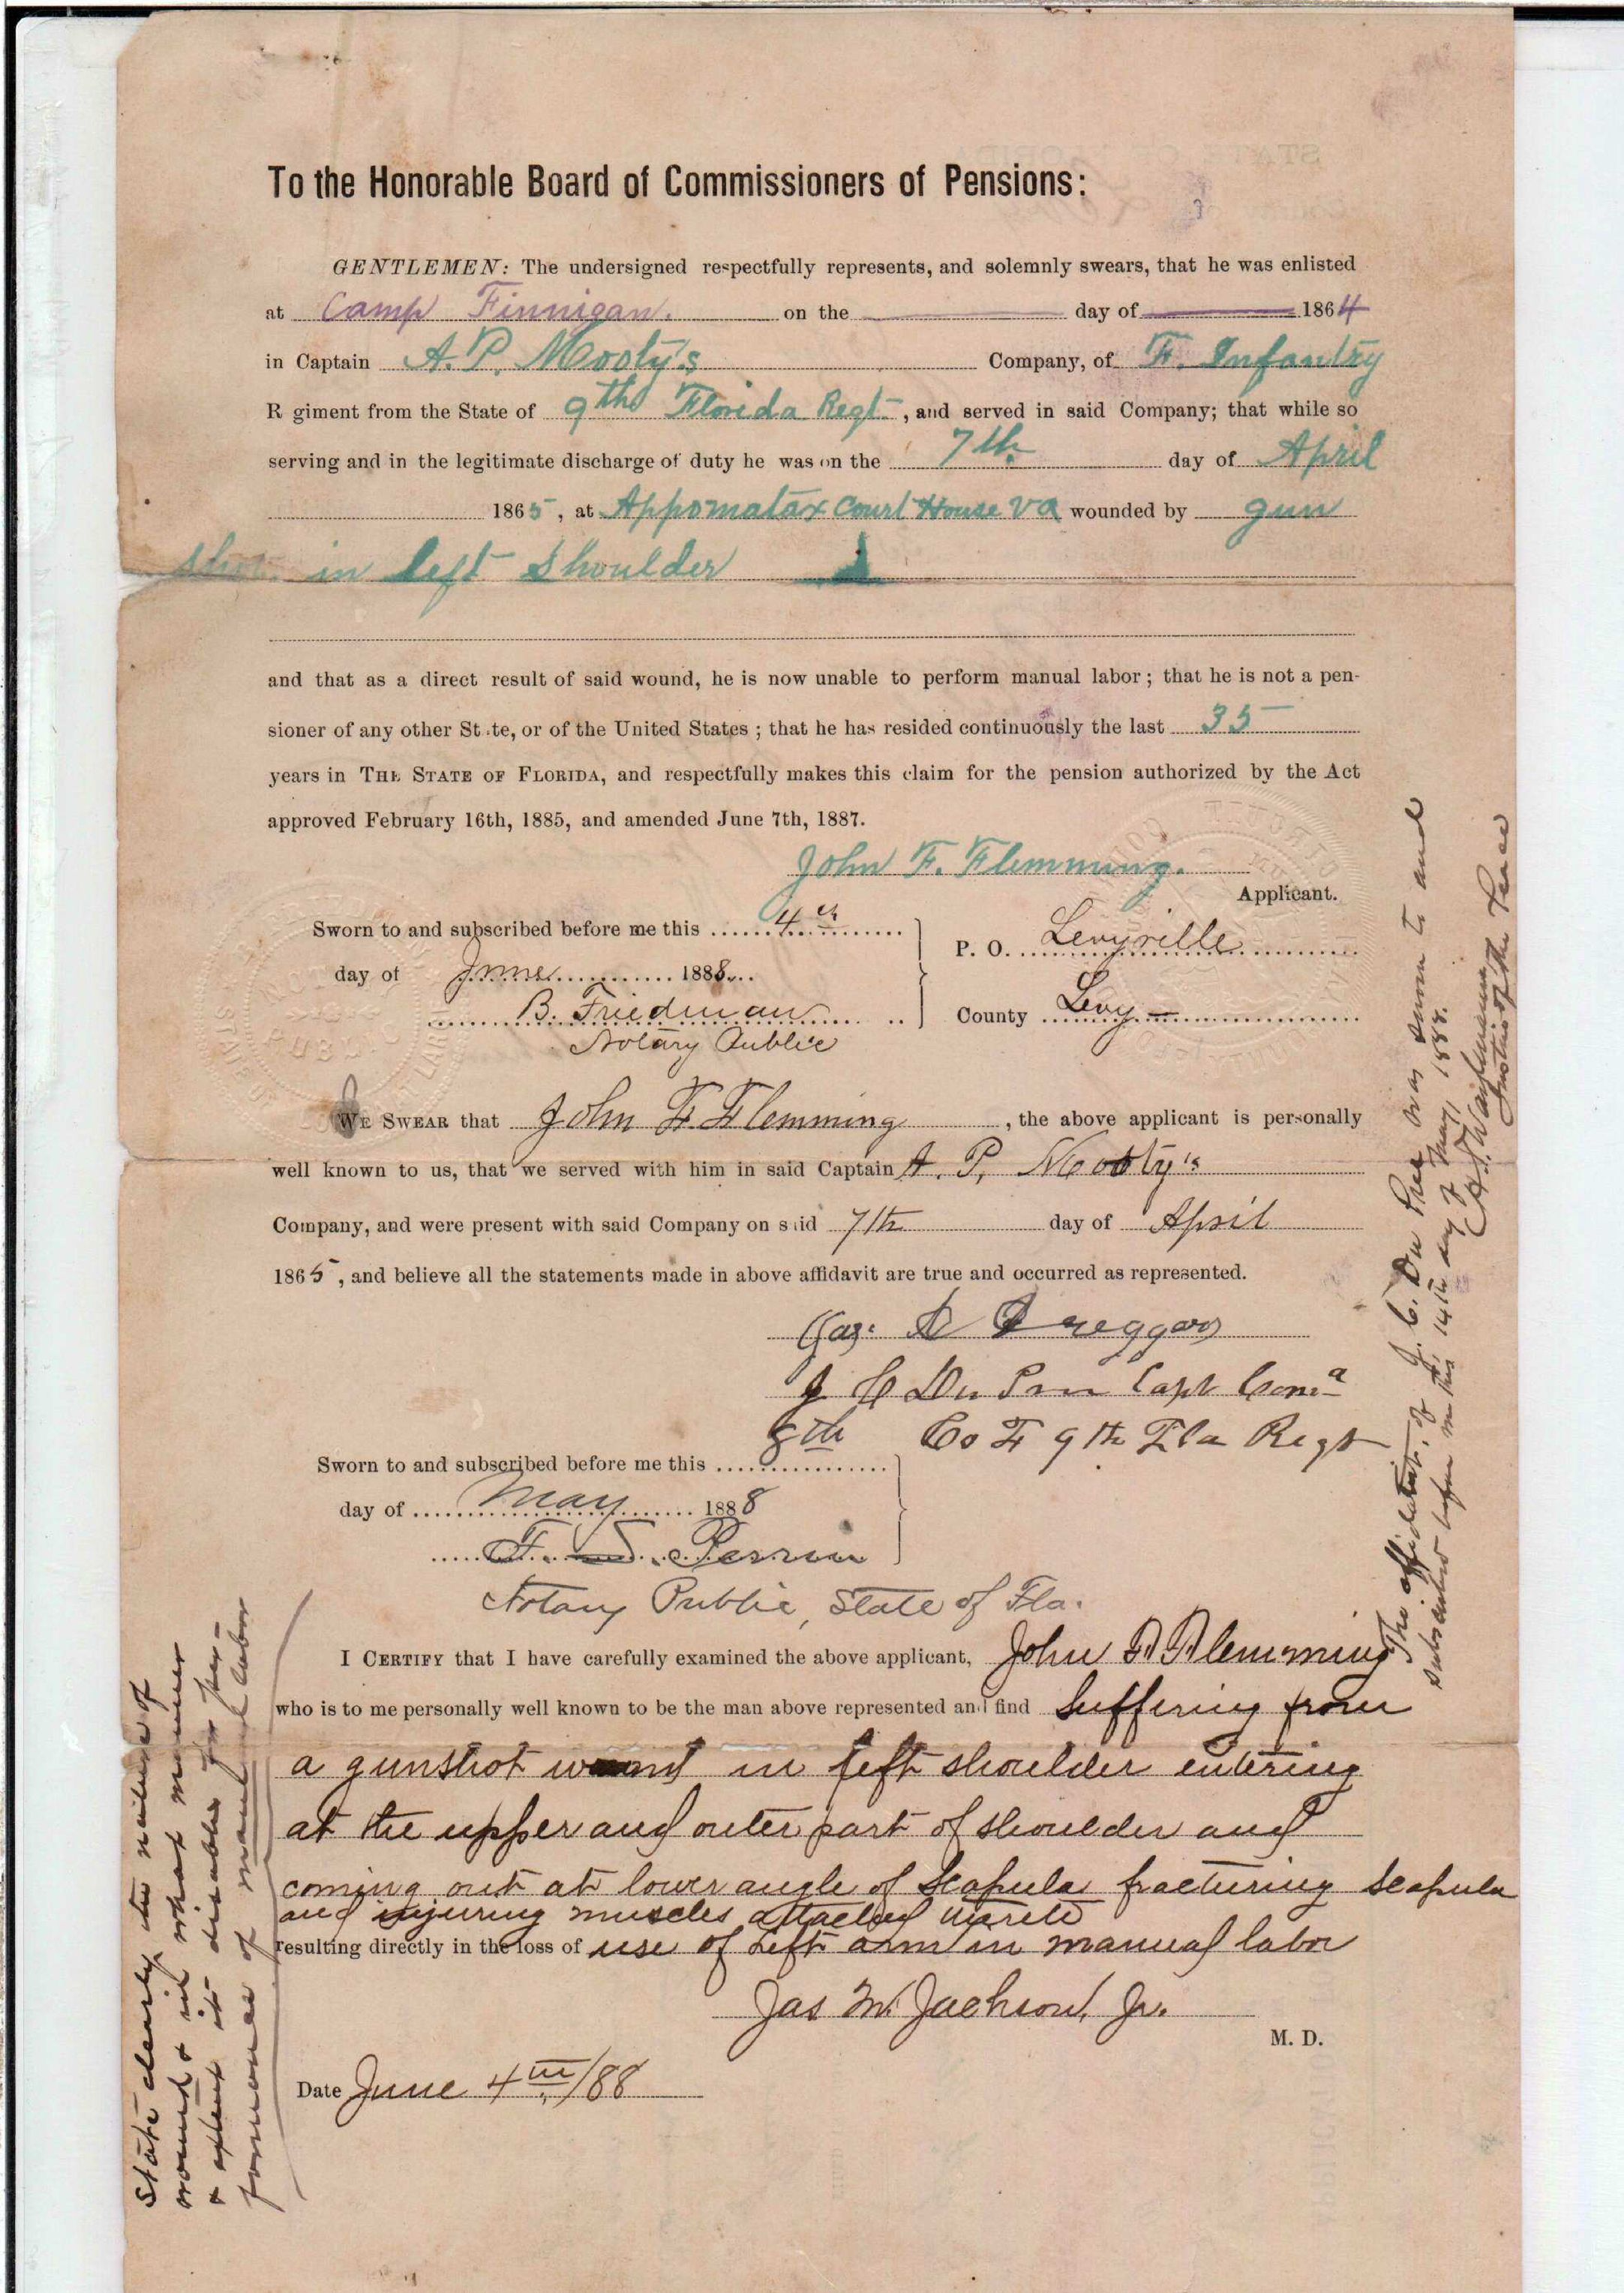 To the Honorable Board of Commissioners of Pensions:
GENTLEMEN: The undersigned respectfully represents, and solemnly swears, that he was enlisted
at Camp Finnigan. on the day of 1864
in Captain A. P. Mooty's Company, of F. Infantry
R giment from the State of 9th Florida Regt, and served in said Company; that while so
serving and in the legitimate discharge of duty he was on the 7th day of April
1865, at Appomatax Court House Va wounded by gun
shot in left shoulder
and that as a direct result of said wound, he is now unable to perform manual labor; that he is not a pen-
sioner of any other St te, or of the United States; that he has resided continuously the last 35
years in THE STATE OF FLORIDA, and respectfully makes this claim for the pension authorized by the Act
approved February 16th, 1885, and amended June 7th, 1887.
John F. Flemming.
Applicant.
Sworn to and subscribed before me this 4th
day of June 1888
B. Friedman
Notary Public
P. O. Levyville
County Levy
WE SWEAR that John F. Flemming, the above applicant is personally
well known to us, that we served with him in said Captain A. P. Mooty's
Company, and were present with said Company on s id 7th day of April
1865, and believe all the statements made in above affidavit are true and occurred as represented.
Jas.
J C Du Pree Capt Com
Co F 9th Fla Regt
Sworn to and subscribed before me this 8th
day of May 1888
F. Perrin
Notary Public, State of Fla.
I CERTIFY that I have carefully examined the above applicant, John F. Flemming
who is to me personally well known to be the man above represented and find Suffering from
a gunshot wound in left shoulder entering
at the upper and outer part of shoulder and
coming out at lower angle of Scapula fracturing Scapula
and injuring muscles attached
resulting directly in the loss of use of Left arm in manual labor
Jas M. Jackson, Jr.
M. D.
Date June 4th/88
State clearly the nature of
wound & in what manner
& extent it disables for per-
formance of manual labor
The affidavit of J. C. Du Pree was sworn to and
subscribed before me this 14th day of May, 1888.
Justice of the Peace